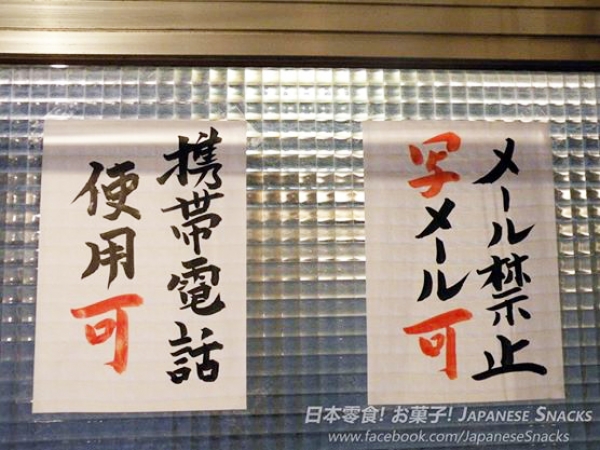 メール禁止
写メール可
携帯電話
使用可
日本零食! お菓子! JAPANESE SNACKS
www.facebook.com/JapaneseSnacks